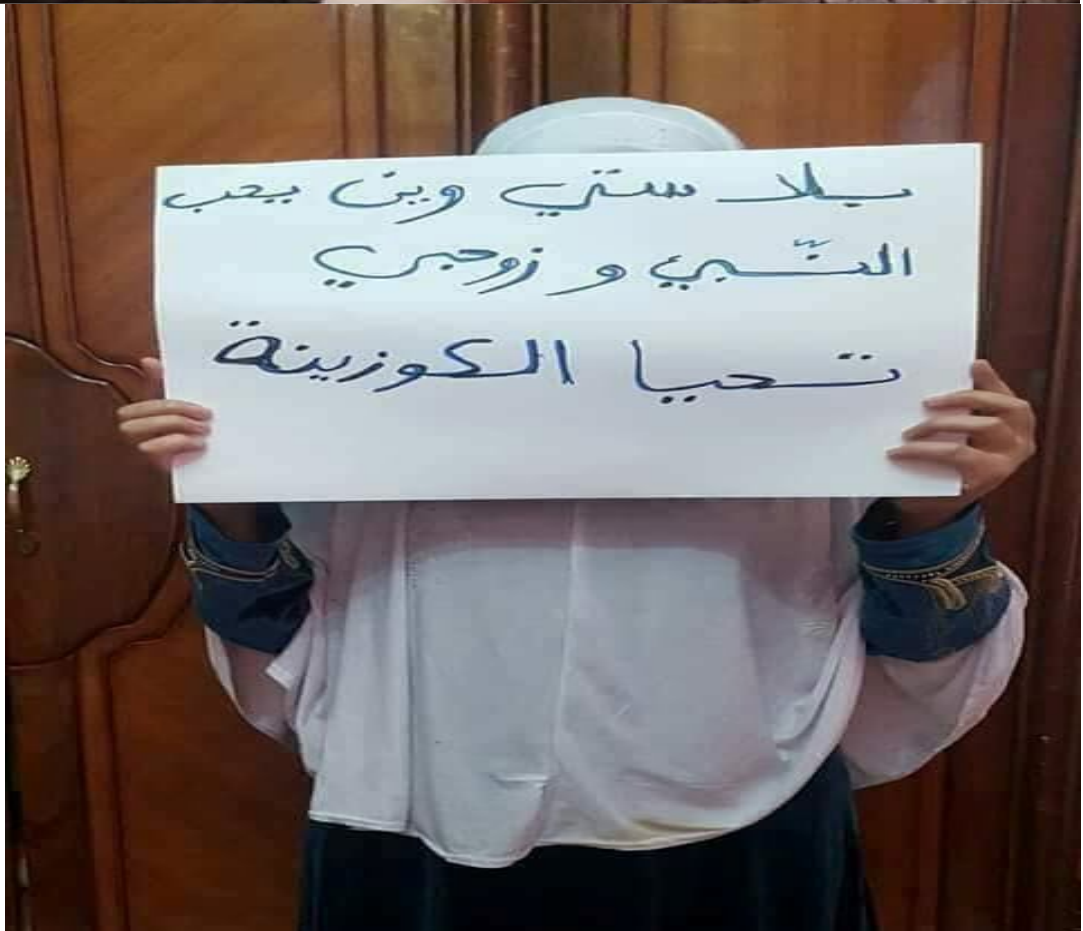 بلاستي وين يحب
النّبي و زوجي
تحيا الكوزينة